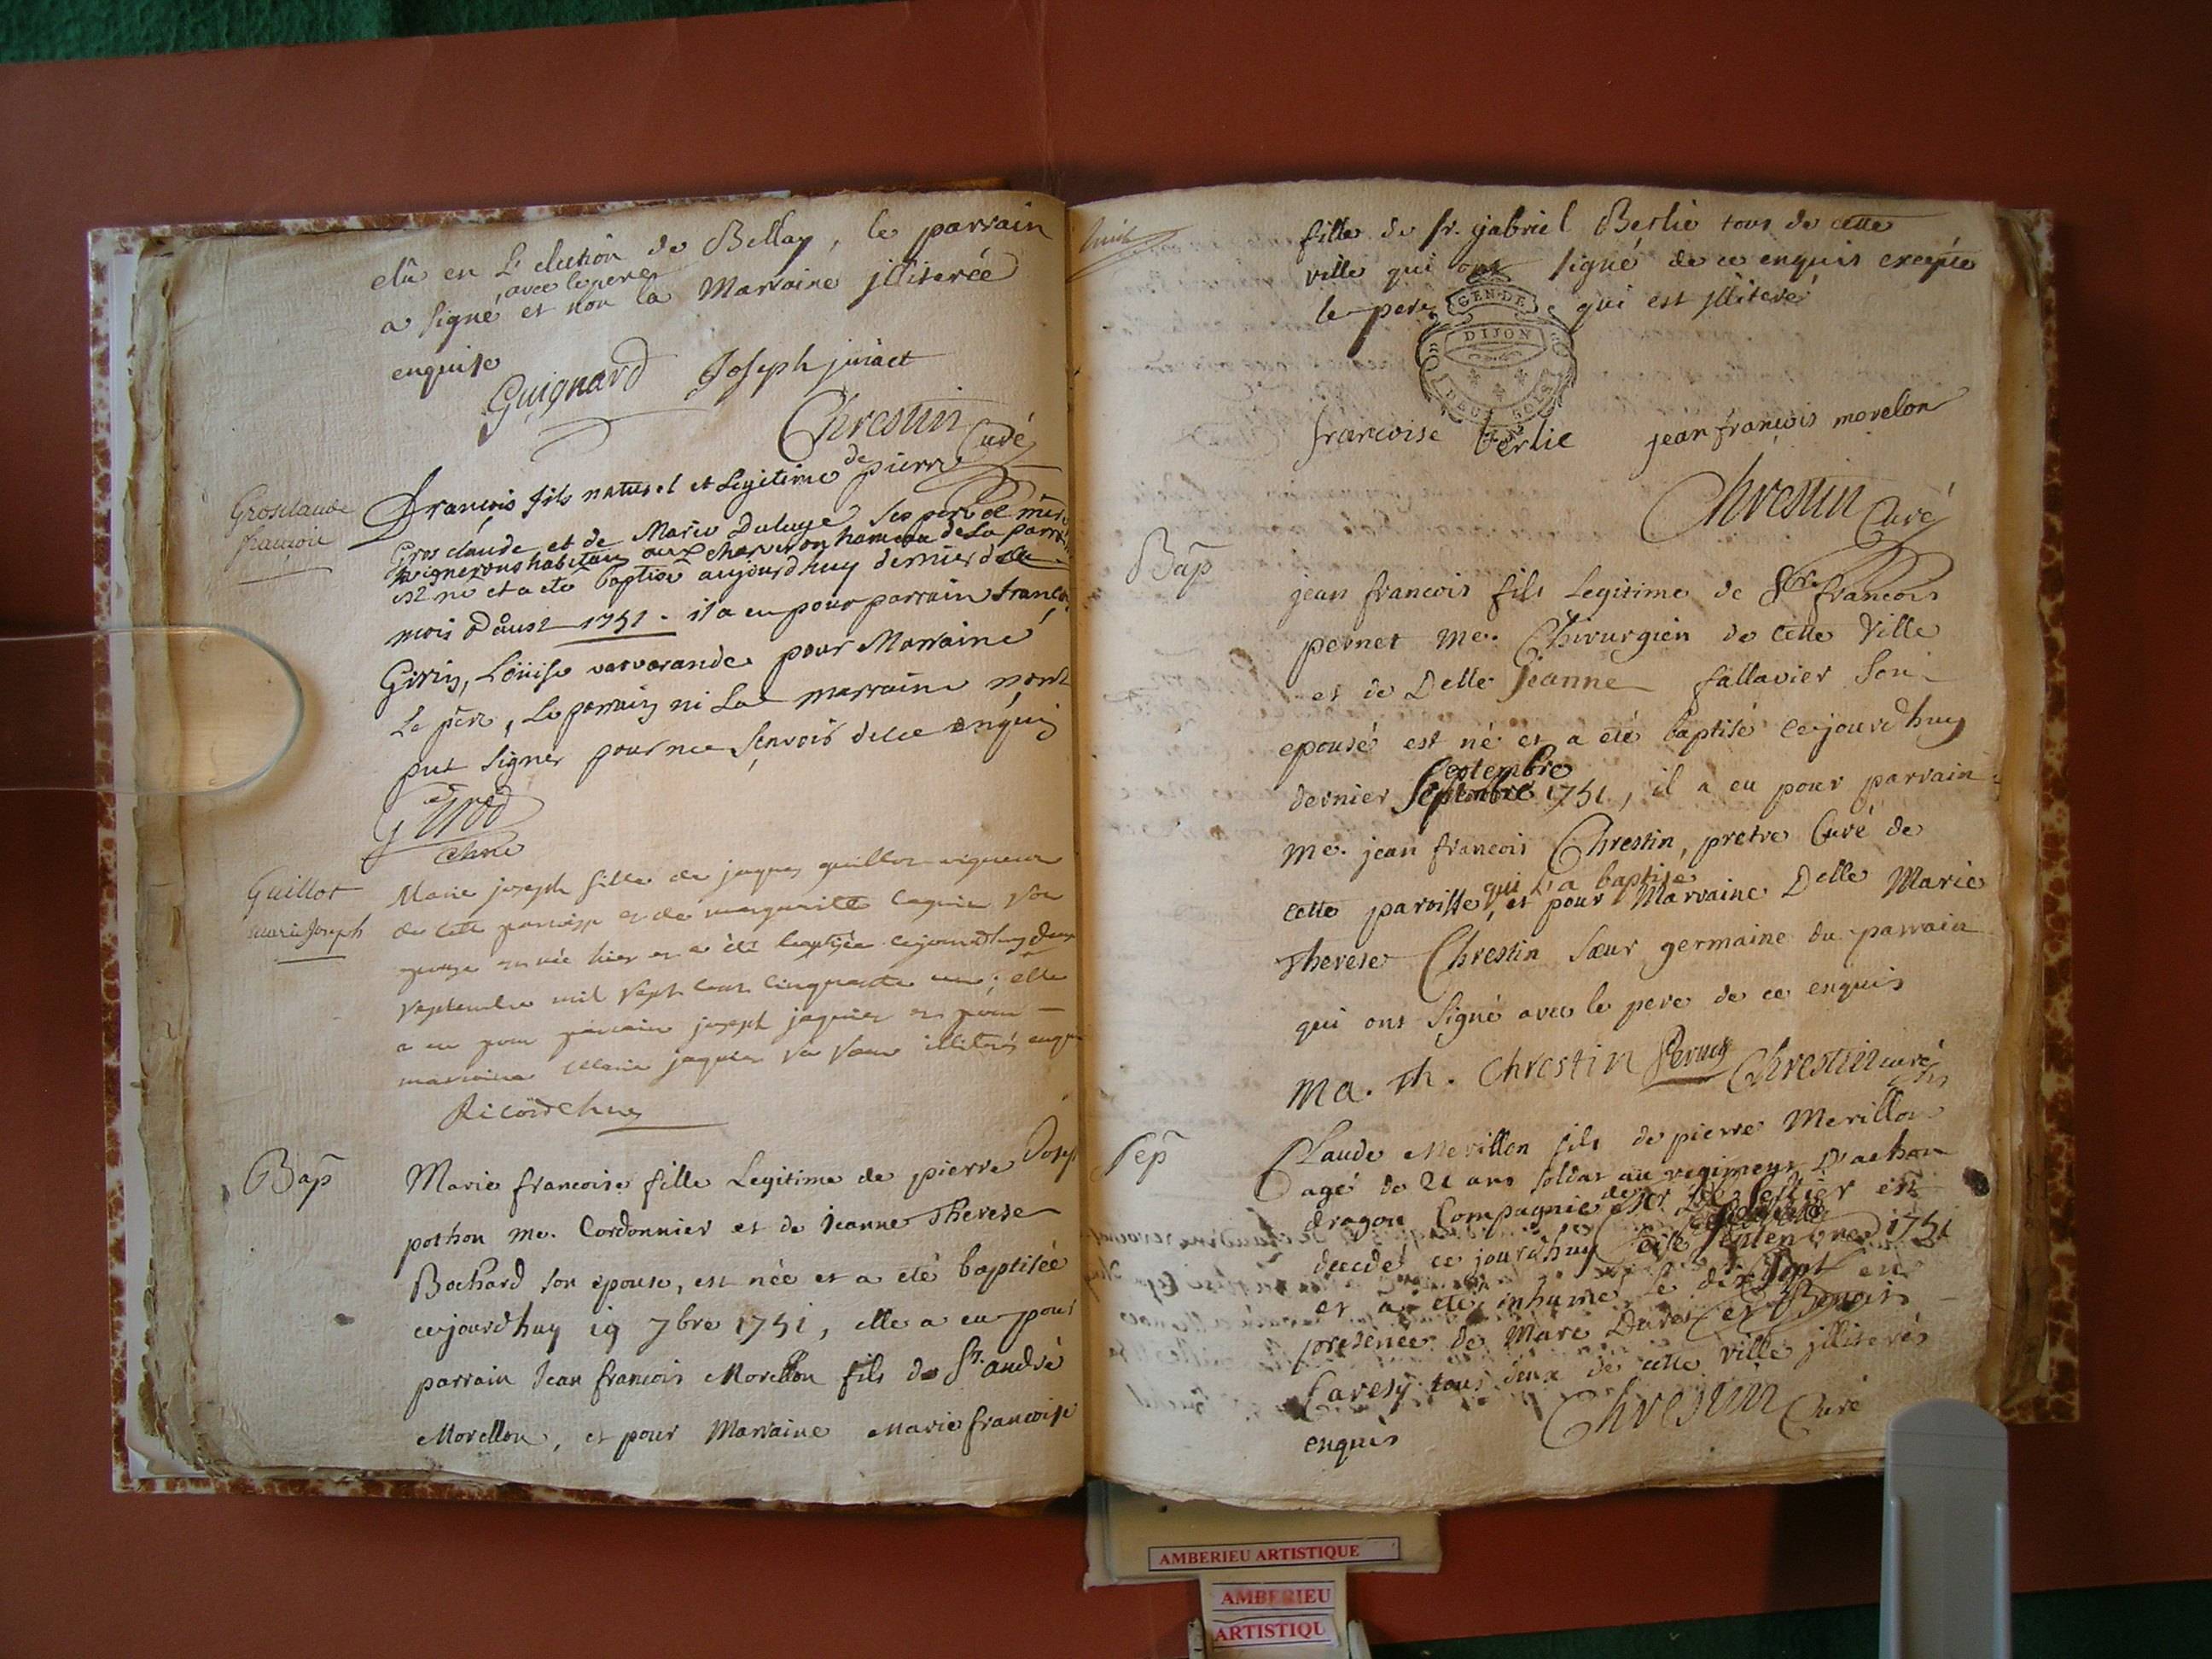 elû en L'election de Bellay, le parrain
avec le pere
a signé et non la Marraine jlliterée
enquise
Guignard Joseph juvact
Chrestin Curé
Grosclaude
francois
francois fils naturel et Legitime de pierre
Gros claude et de Marie Duluye ses pere et mere
vignerons habitans aux charveron hameau de La parroi
est né et a eté baptisé aujourdhuy dernier de ce
mois d'aust 1751. il a eu pour parrain franco
Girin, Loüise varvarande pour Marraine
Le père, Le parrain ni La marraine n'ont
put signer pour nee sçavoir de ce enquis
Guillot
marie Joseph
Marie joseph fille de jaques guillot vigneron
de cette parroisse et de marguerite son
epouse est née hier et a été baptisée cejourdhuy deux
septembre mil sept cent cinquante un; elle
a eu pour parrain joseph jaquier et pour
marraine Marie jaquier sa sœur illiterés enquis
Bap
Marie francoise fille Legitime de pierre Josep
pothon me. Cordonnier et de Jeanne Therese
Bochard son epouse, est née et a eté baptisée
cejourdhuy 19 7bre 1751, elle a eu pour
parrain Jean francois Morellon fils de Sr. andré
Morellon, et pour Marraine Marie francoise
huit
fille de sr. gabriel Berlie tous de cette
ville qui ont signé de ce enquis excepté
le pere qui est jlliteré
GEN. DE
DIJON
DEUX SOLS
francoise berlie jean françois morelon
Chrestin Curé
Bap
jean francois fils Legitime de Sr. francois
pernet me. Chirurgien de cette Ville
et de Delle Jeanne fallavier son
epouse est né et a eté baptisé cejourdhuy
septembre
dernier septembre 1751, il a eu pour parrain
me. jean francois Chrestin, pretre Curé de
qui l'a baptisé
cette paroisse, et pour Marraine Delle Marie
Therese Chrestin sœur germaine du parrain
qui ont signé avec le pere de ce enquis
Ma. Th. Chrestin Pernet Chrestin curé
Sep
Claude Merillon fils de pierre Merillon
agé de 21 ans soldat au regiment D'achon
dragon Compagnie de Mr. Le Sellier est
decedé ce jourdhuy septembre 1751
et a eté inhumé le dix sept en
presence de Marc Duret et Benoist
Saresy tous deux de cette ville jlliterés
enquis
Chrestin Curé
AMBERIEU ARTISTIQUE
AMBERIEU
ARTISTIQU